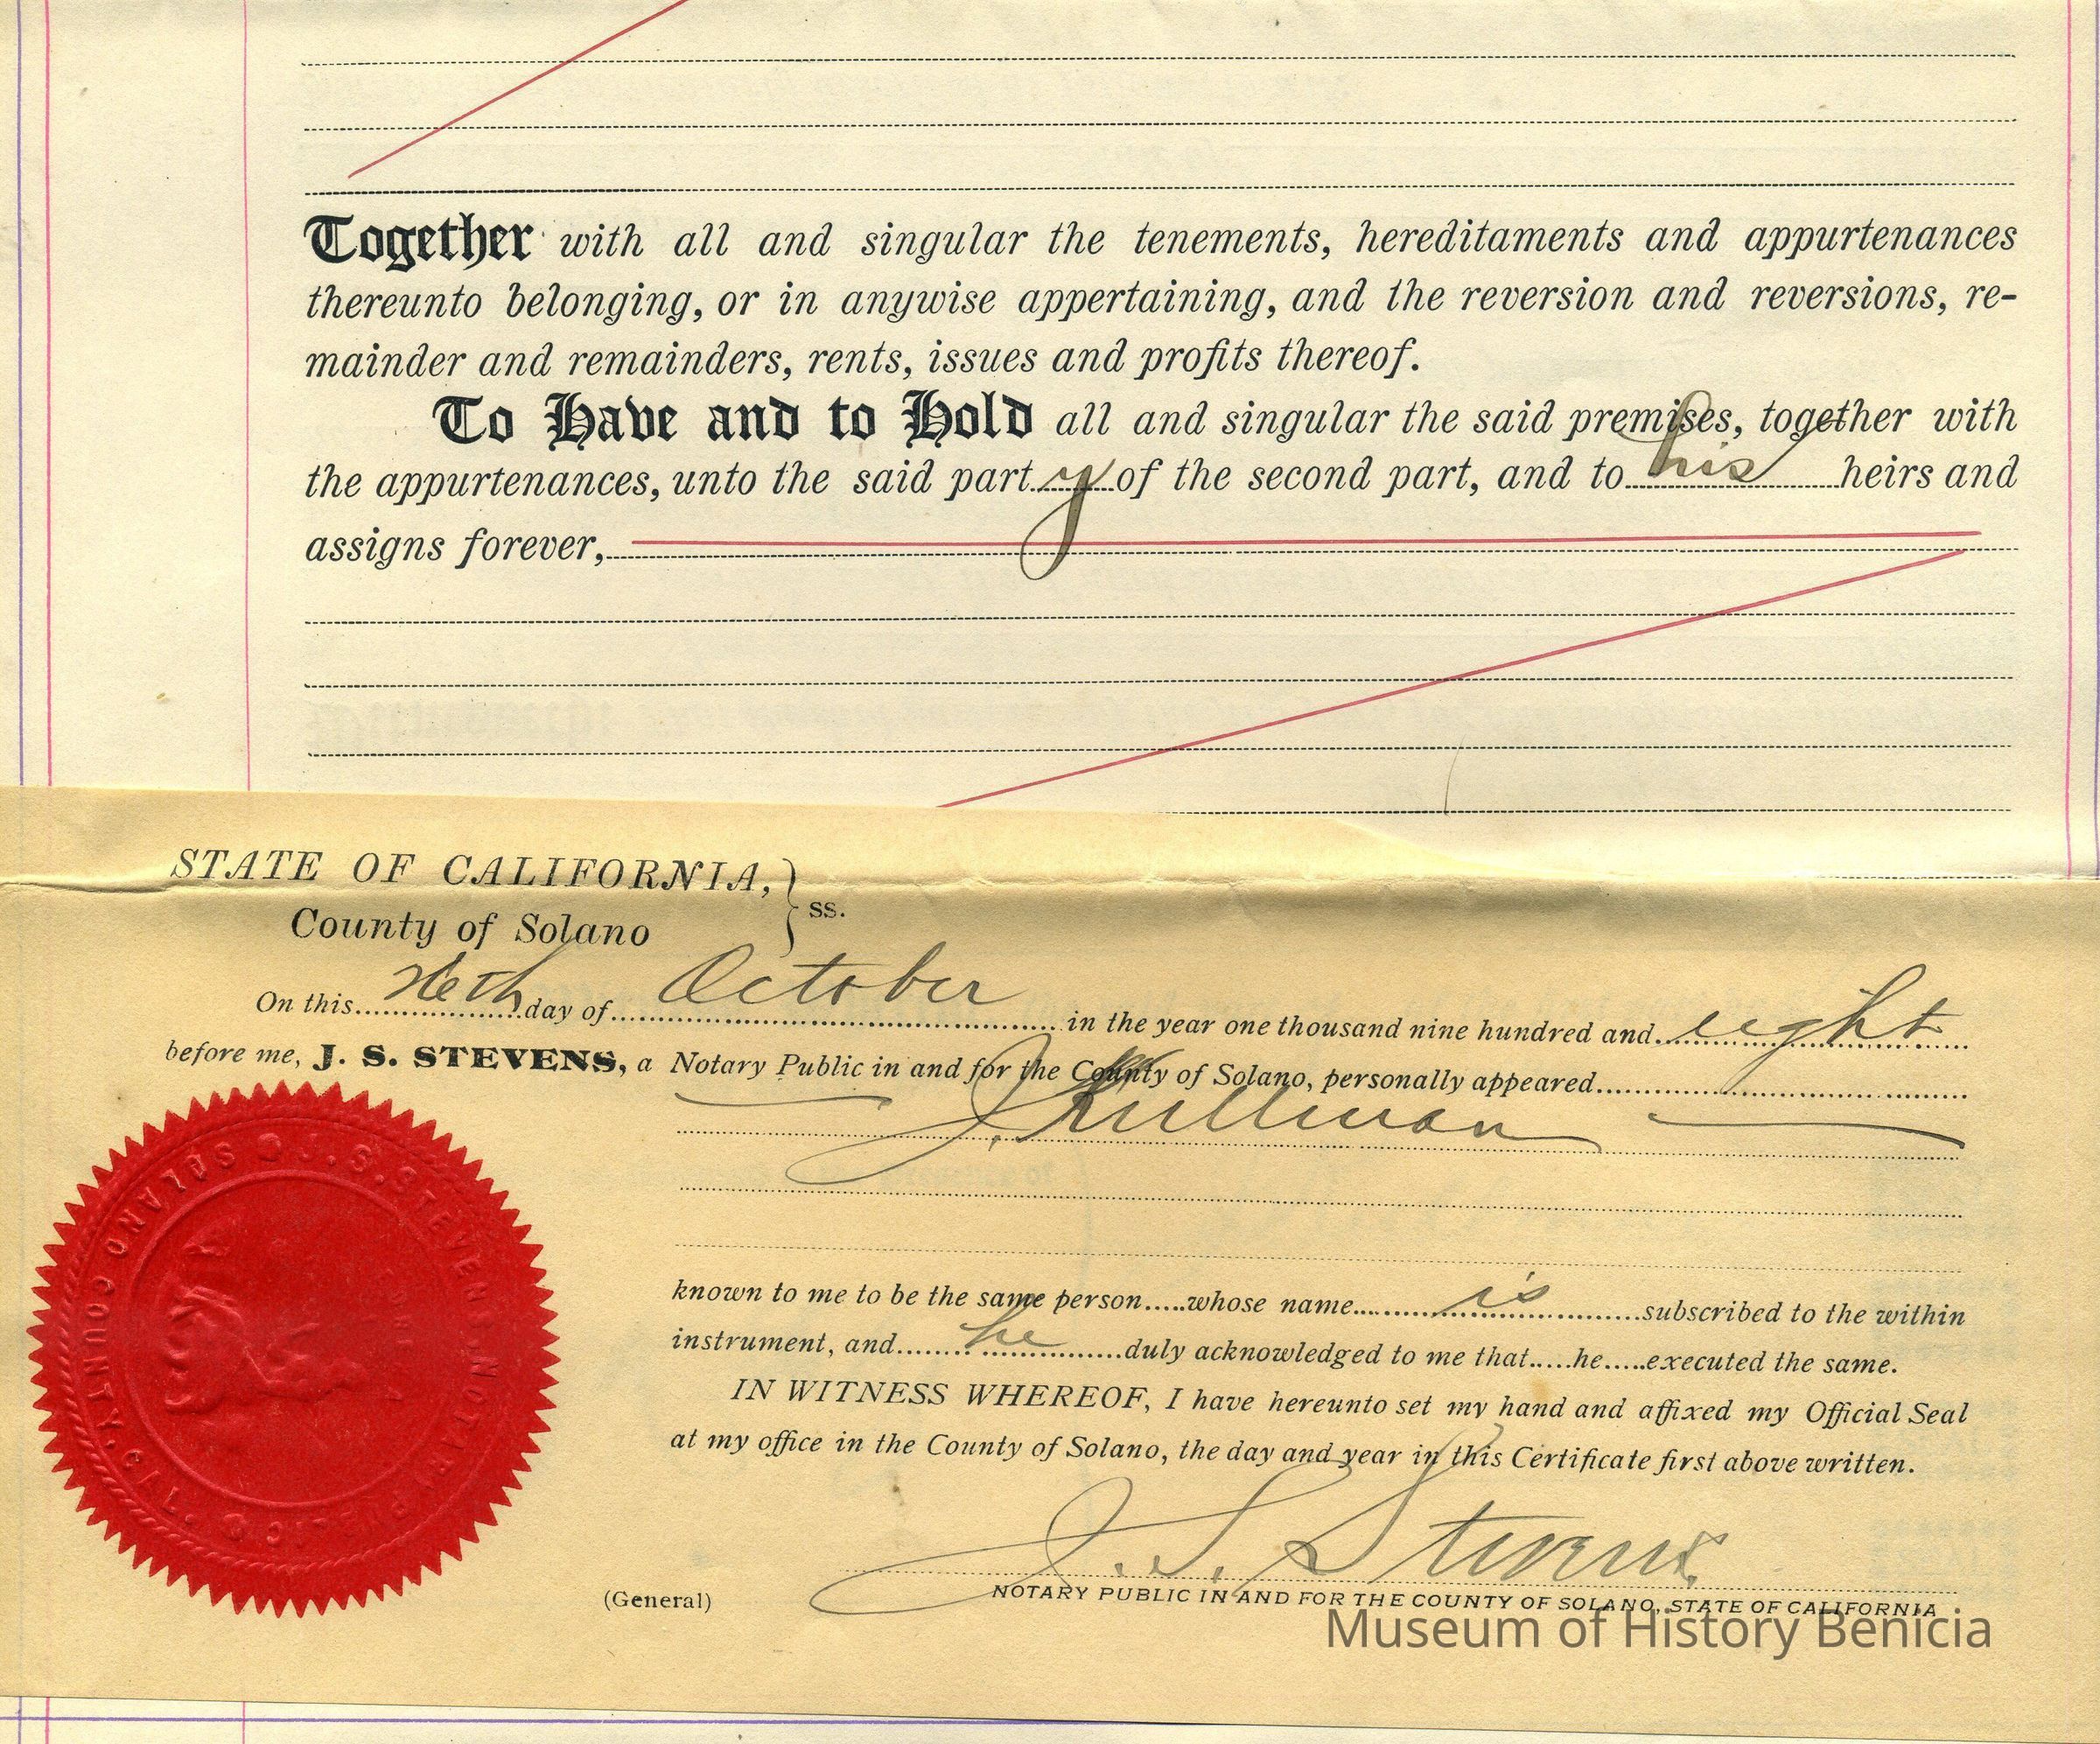 Together with all and singular the tenements, hereditaments and appurtenances
thereunto belonging, or in anywise appertaining, and the reversion and reversions, re-
mainder and remainders, rents, issues and profits thereof.
To Have and to Hold all and singular the said premises, together with
the appurtenances, unto the said party of the second part, and to his heirs and
assigns forever,
STATE OF CALIFORNIA, } ss.
County of Solano
On this day of October in the year one thousand nine hundred and eight
before me, J. S. STEVENS, a Notary Public in and for the County of Solano, personally appeared
J. Kullman
known to me to be the same person whose name is subscribed to the within
instrument, and he duly acknowledged to me that he executed the same.
IN WITNESS WHEREOF, I have hereunto set my hand and affixed my Official Seal
at my office in the County of Solano, the day and year in this Certificate first above written.
J. S. Stevens
(General) NOTARY PUBLIC IN AND FOR THE COUNTY OF SOLANO, STATE OF CALIFORNIA
J. S. STEVENS NOTARY PUBLIC
SOLANO COUNTY, CAL.
Museum of History Benicia